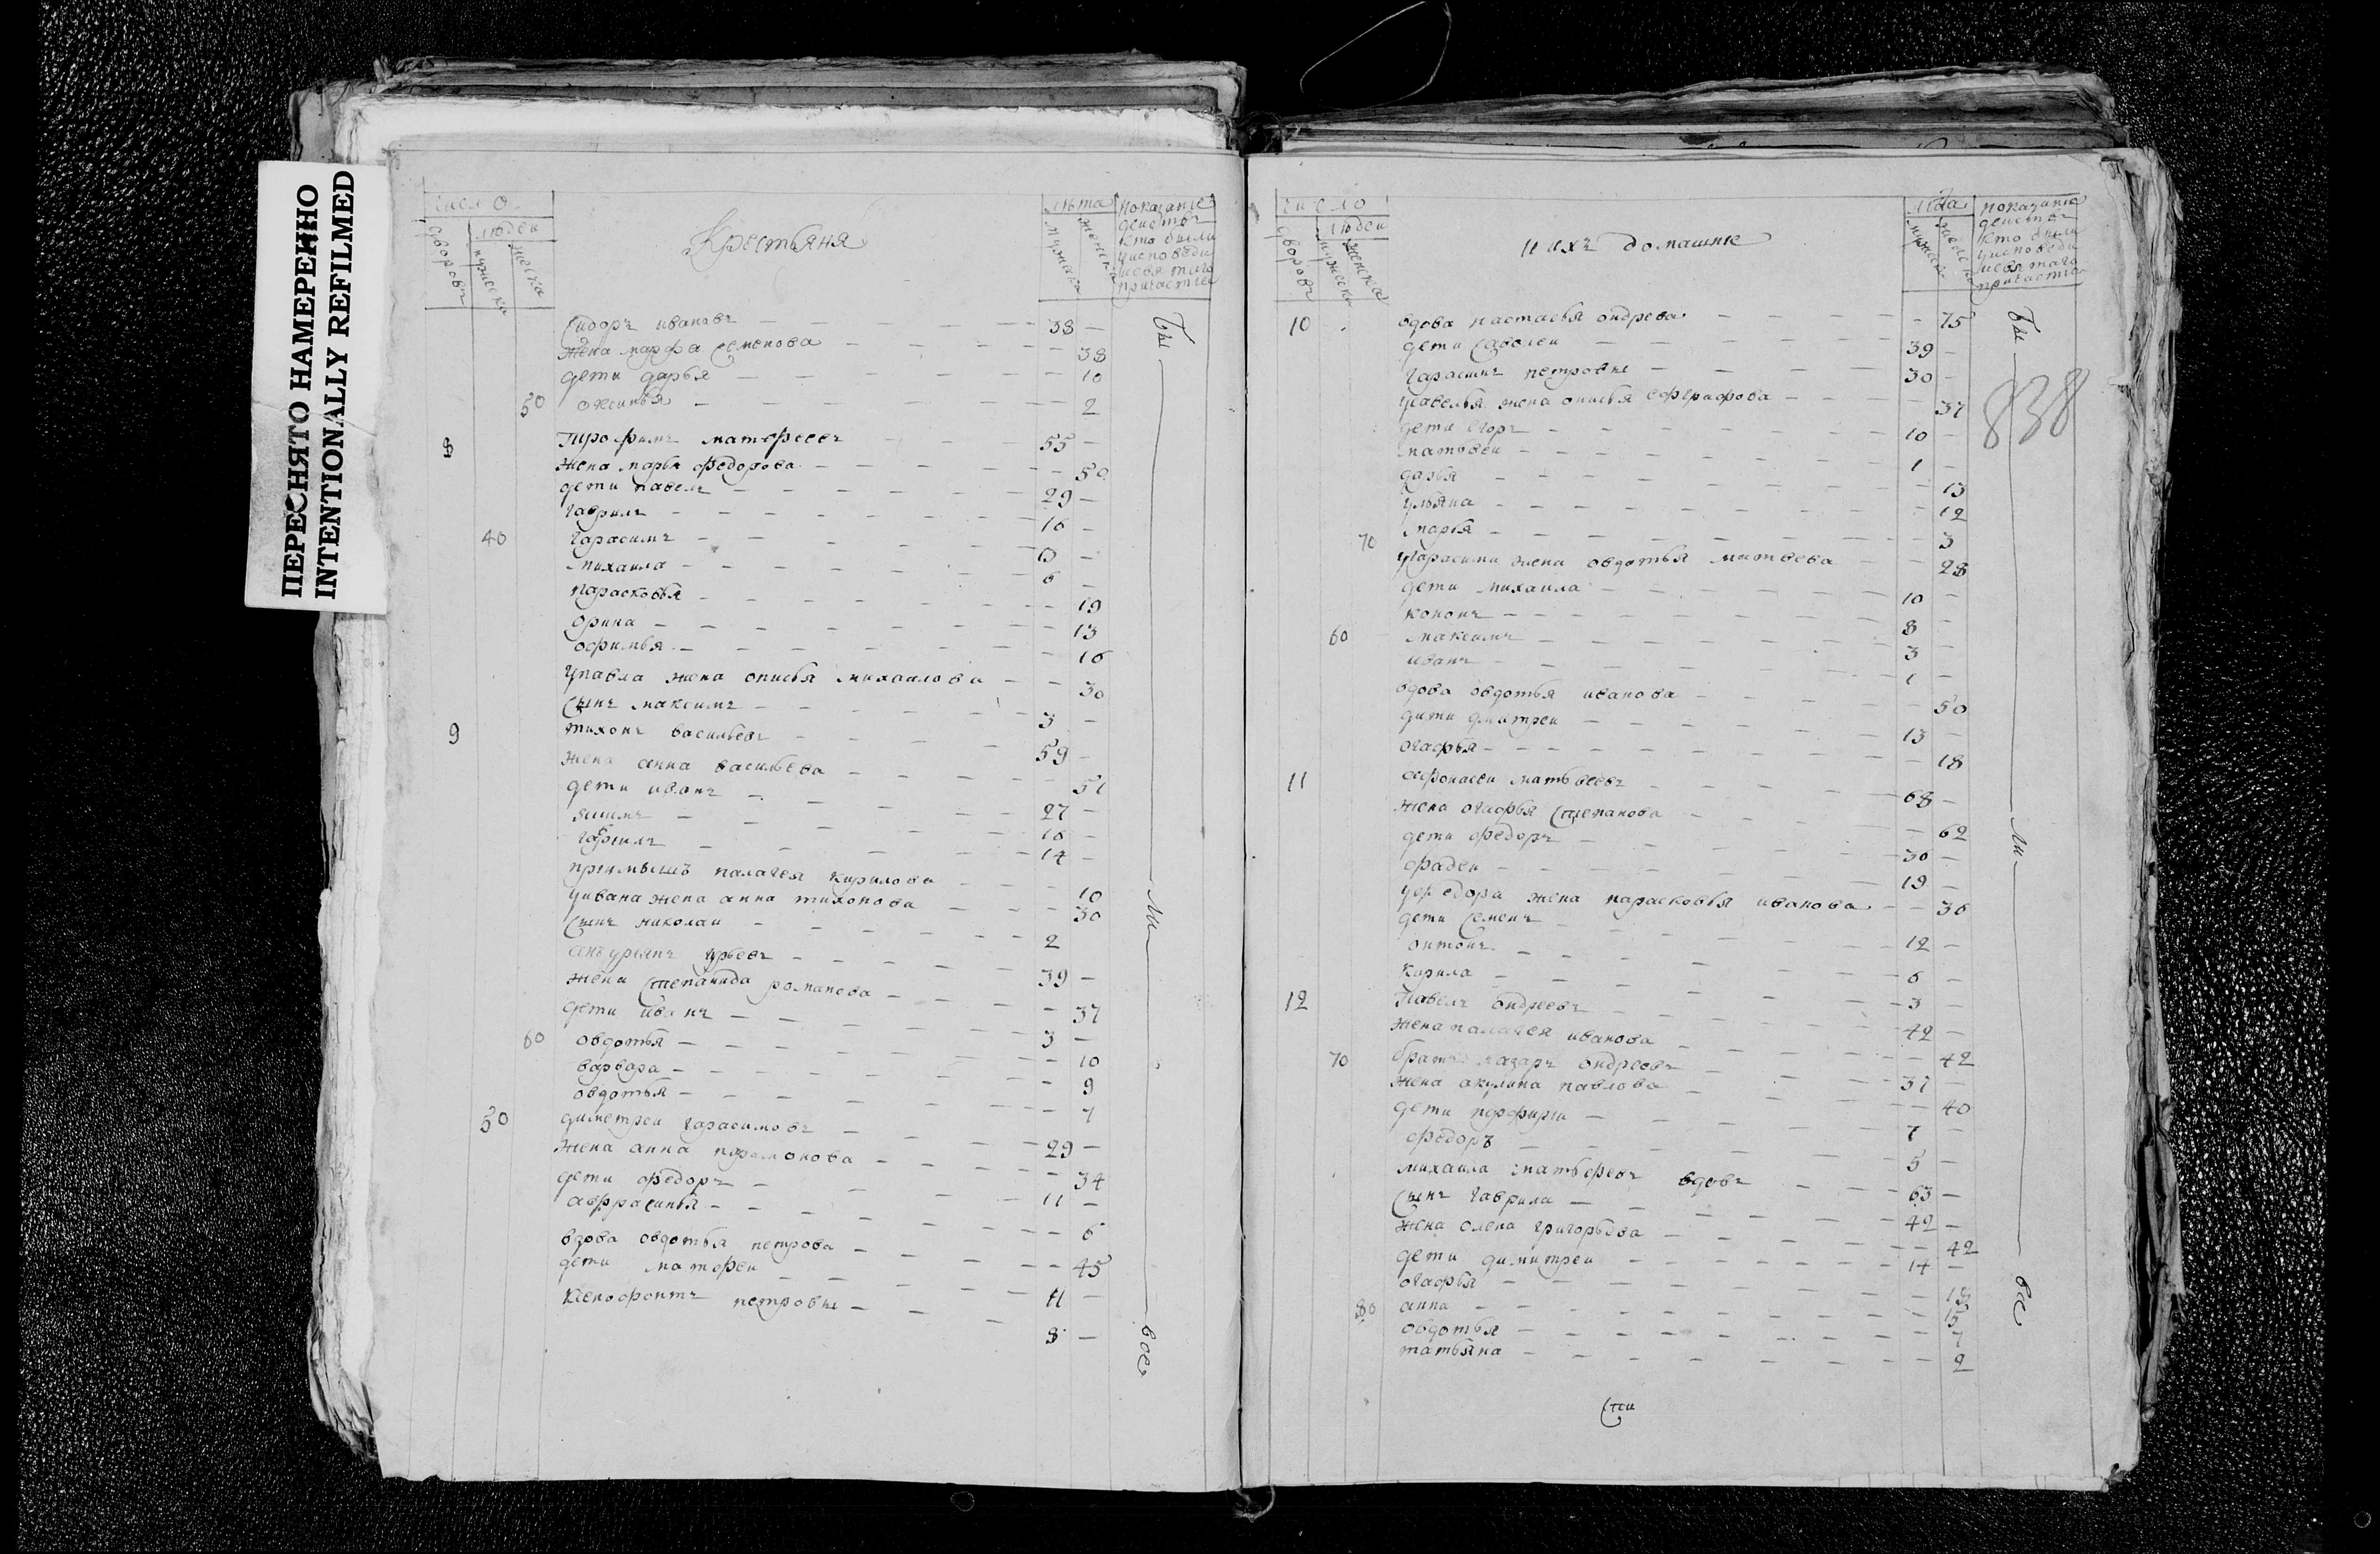 ПЕРЕСНЯТО НАМЕРЕННО
INTENTIONALLY REFILMED
число
людеи
дворовъ
мужеска
женска
Крестьяня
лѣта
мужеска
женска
показание
деиствъ
кто были
уисповеди
исвятаго
причастия
Бы
ли
все
Сидоръ ивановъ 38
жена марфа Семенова 38
дети дарья 10
50 оксинья 2
8 Трофимъ матфеевъ 55
жена марья федорова 50
дети павелъ 29
гаврилъ 16
40 гарасимъ 13
михаила 6
парасковья 19
орина 13
офимья 16
упавла жена описья михаилова 30
Сынъ максимъ 3
9 тихонъ васильевъ 59
жена анна васильева 51
дети иванъ 27
якимъ 16
гаврилъ 14
приимышъ палагея кирилова 10
уивана жена анна тихонова 30
Сынъ николаи 2
юрьевъ 39
жена Степанида романова 37
дети иванъ 3
60 овдотья 10
варвара 9
овдотья 7
50 диметреи гарасимовъ 29
жена анна парамонова 34
дети федоръ 11
аффрасинья 6
вдова овдотья петрова 45
дети матфеи 11
Ксенофонтъ петровы 8
число
людеи
дворовъ
мужеска
женска
и ихъ домашние
лѣта
мужеска
женска
показание
деиствъ
кто были
уисповеди
исвятаго
причастия
838
Бы
ли
все
10 вдова настасья ондреева 75
дети Савелеи 39
гарасимъ петровы 30
усавелья жена описья 37
дети егоръ 10
матвеи 1
дарья 13
ульяна 12
70 марья 3
угарасима жена овдотья матвеева 28
дети михаила 10
кононъ 8
60 максимъ 3
иванъ 1
вдова овдотья иванова 50
дети дмитреи 13
огафья 18
11 афонасеи матвеевъ 68
жена огафья Степанова 62
дети федоръ 30
фадеи 19
уфедора жена парасковья иванова 36
дети Семенъ 12
онтонъ 6
кирила 3
12 Павелъ ондреевъ 42
жена палагея иванова 42
70 братъ назаръ ондреевъ 37
жена акулина павлова 40
дети порфиреи 7
федоръ 5
михаила матвфеевъ вдовъ 63
Сынъ гаврила 42
жена олена григорьева 42
дети димитреи 14
огафья 18
80 анна 15
овдотья 7
татьяна 2
Сти